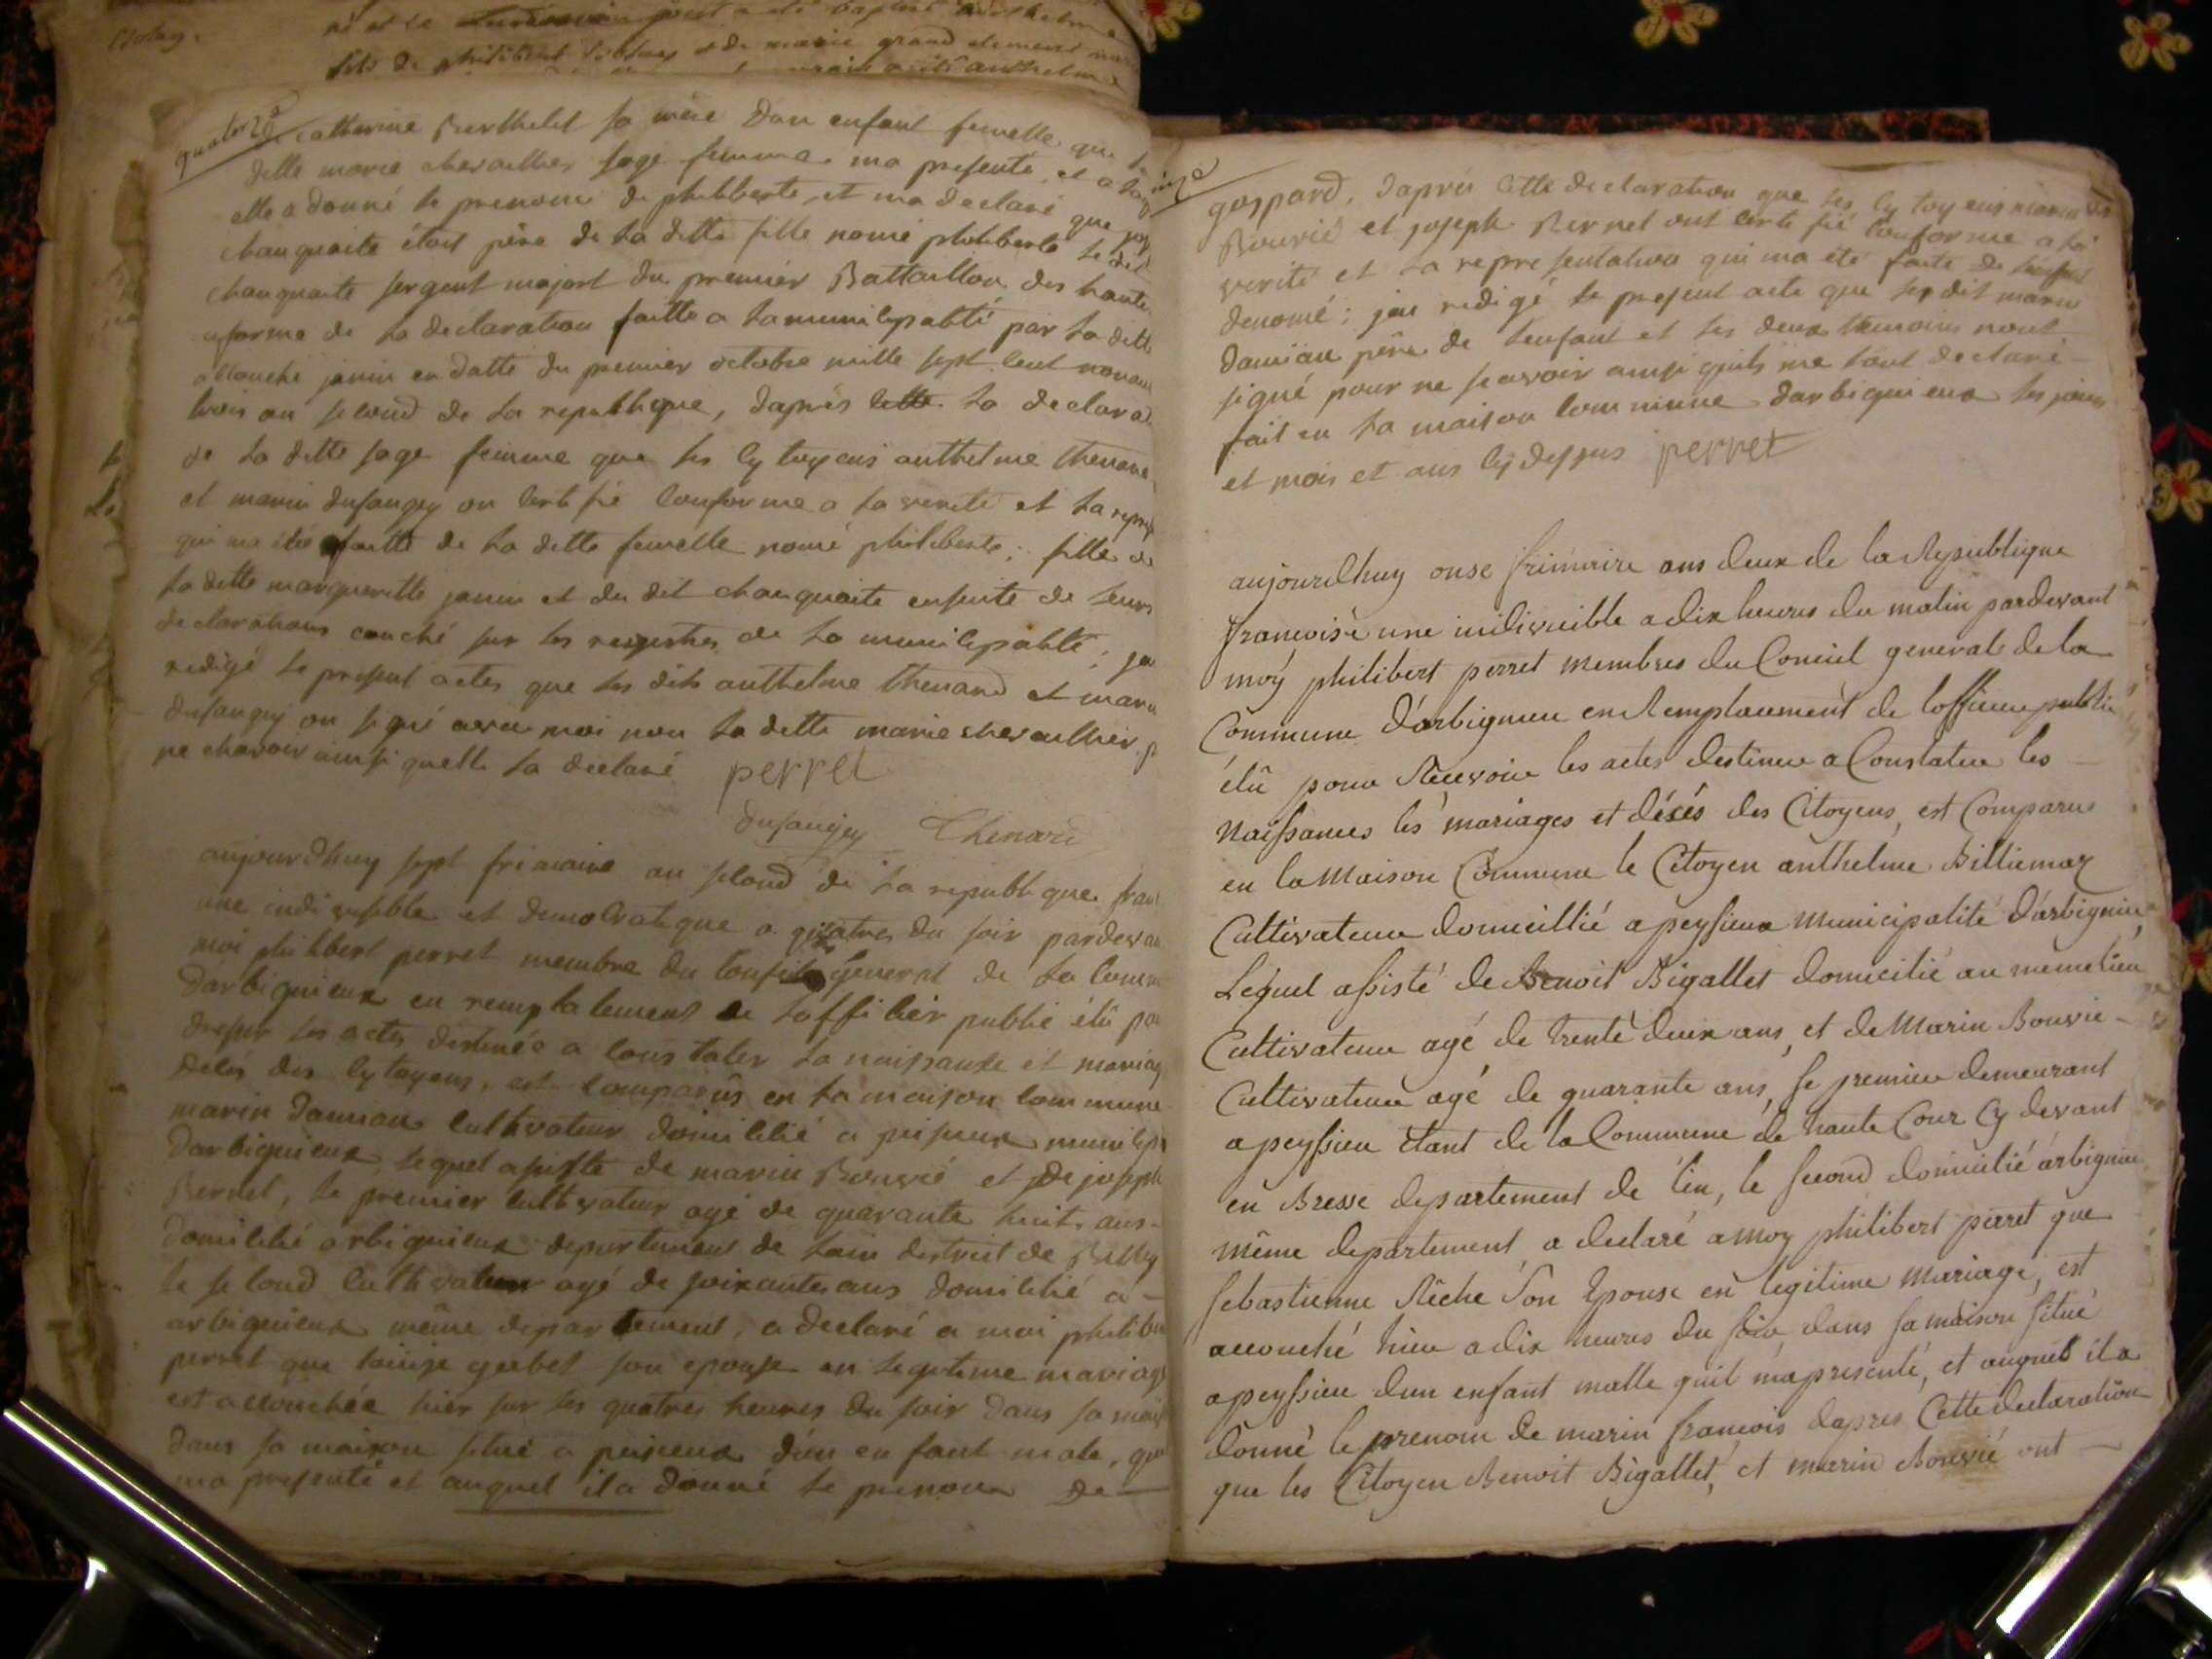 fils de philibert et de marie grand clement
quatorze
catherine Berthelet sa mère Dun enfant femelle que la
ditte marie chevallier sage femme ma presenté et a laq
elle a donné le prenom de philiberte, et ma declaré que
chanquaite étoit père de la ditte fille nomé philiberte le dit
chanquaite sergent majort du premier Battaillon des haute
a forme de la declaration faitte a la municipalité par la ditte
allouché janin en datte du premier octobre mille sept cent nonan
trois an second de la republique, daprès cette la declara
de la ditte sage femme que les cytoyens anthelme thenard
et marin dusaugey on certifié conforme a la verité et la repres
qui ma étée faitte de la ditte femelle nomé philiberte; fille de
la ditte margueritte janin et du dit chanquaite ensuite de leurs
declarations couché sur les regestres de la municipalité; jai
redigé le present actes que les dits anthelme thenard et marin
dusaugey on signé avec moi non la ditte marie chevallier p
ne chavoir ainsi quelle la declaré perret
dusaugey Thenard
aujourdhuy sept frimaire an second de la republique fran
une indivisible et democratique a quatres du soir pardevan
moi philibert perret membre du conseil general de la comm
darbignieux en remplacement de lofficier public élû pou
dresser les actes destinés a constater la naissance et mariag
décés des cytoyens, est comparûs en la maison commune
marin damian cultivateur domicilié a peisieux municip
darbignieux, lequel assisté de marin Bouvié et de joseph
Bernet, le premier cultivateur agé de quarante huit ans
domicilié arbignieux departement de lain destrict de Belley
le second cultivateur agé de soixantes ans domicilié a
arbignieux même departement, a declaré a moi philibert
perret que louise gerbet son epouse en legitime mariage
est accouchée hier sur les quatres heures du soir dans sa mais
dans sa maison situé a peisieux d'un enfant male, qui
ma presenté et auquel il a donné le prenom De
gaspard, daprès cette declaration que les cytoyens marin
Bouvié et joseph Bernet ont certifié conforme a la
verité et la representation qui ma été faite de lenfant
denomé; jai redigé le present acte que le dit marin
damian père de lenfant et les deux temoins nont
signé pour ne scavoir ainsi quils me lont declaré
fait en la maison commune darbignieux les jours
et mois et ans cÿ dessus perret
aujourdhuy onse frimaire ans deux de la Republique
françoise une indivisible a dix heures du matin pardevant
moÿ philibert perret membres du Conseil general de la
Commune d'arbignieu en Remplacement de lofficier public
élû pour Recevoir les actes destinée a Constater les
naissances les mariages et désés des Citoyens, est Comparue
en la Maison Commune le Citoyen anthelme Billiemaz
Cultivateur domicillié a peysieux Municipalité d'arbignieu
Lequel assisté de Benoit Bigallet domicilié au meme lieu
Cultivateur agé de trente deux ans, et de Marin Bouvié
Cultivateur agé de quarante ans, le premier demeurant
a peyssieu étant de la Commune de haute Cour Cy devant
en Bresse departement de l'ain, le second domicilié arbignieu
même departement a declaré a Moy philibert perret que
sebastienne Rêche Son Epouse en legitime mariage, est
accouché hier a dix heures du soir dans sa maison situé
a peyssieu dun enfant malle quil ma presenté, et auquel il a
donné le prenom de marin françois dapres Cette declaration
que les Citoyen Benoit Bigallet, et marin Bouvié ont